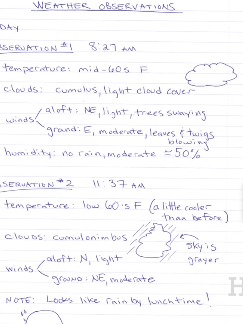 WEATHER OBSERVATIONS
DAY
SERVATION #1 8:27 AM
temperature: mid-60s F
clouds: cumulus, light cloud cover
winds
aloft: NE, light, trees swaying
ground: E, moderate, leaves & twigs
blowing
humidity: no rain, moderate ≈50%
SERVATION #2 11:37 AM
temperature: low 60's F (a little cooler
than before)
clouds: cumulonimbus
sky is
grayer
winds
aloft: N, light
ground: NE, moderate
NOTE: Looks like rain by lunchtime!